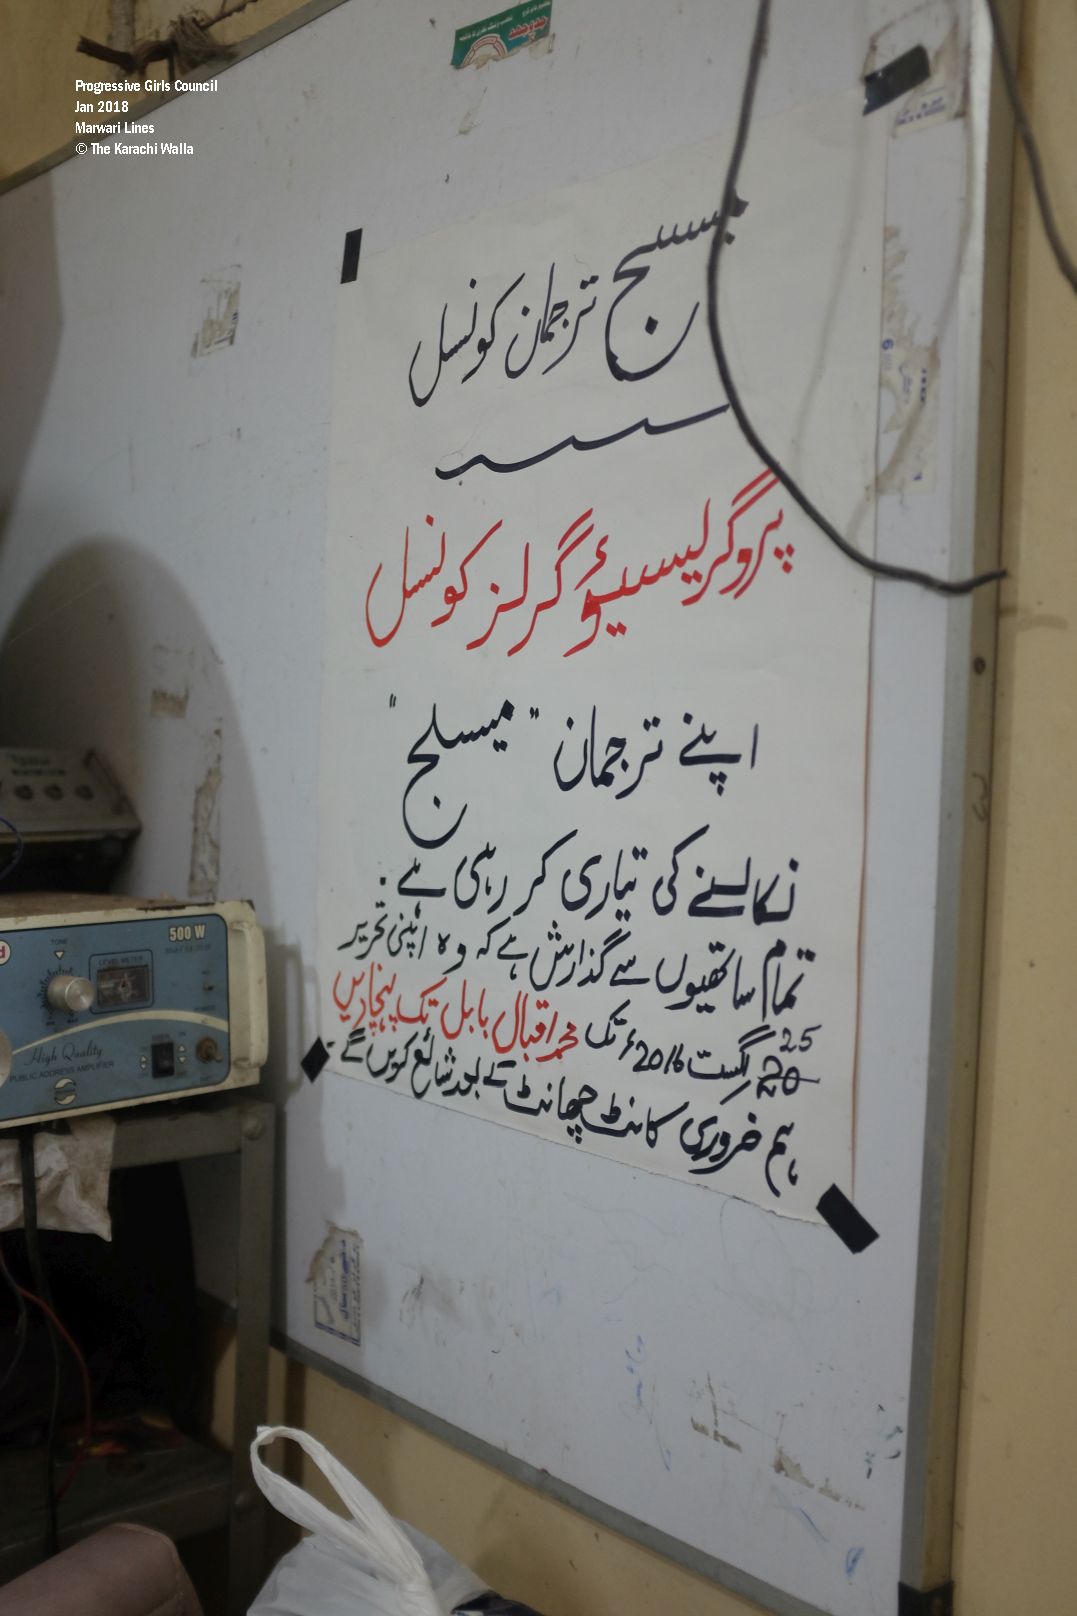 Progressive Girls Council
Jan 2018
Marwari Lines
© The Karachi Walla
جدوجہد
میسیج ترجمان کونسل
پروگریسیؤ گرلز کونسل
اپنے ترجمان "میسلج"
نکالنے کی تیاری کر رہی ہے.
تمام ساتھیوں سے گذارش ہے کہ وہ اپنی تحریر
25
20 اگست 2016ء تک محمد اقبال بابل تک پہنچادیں
ہم ضروری کانٹ چھانٹ کے بعد شائع کریں گے۔
500 W
TONE
LEVEL METER
High Quality
PUBLIC ADDRESS AMPLIFIER